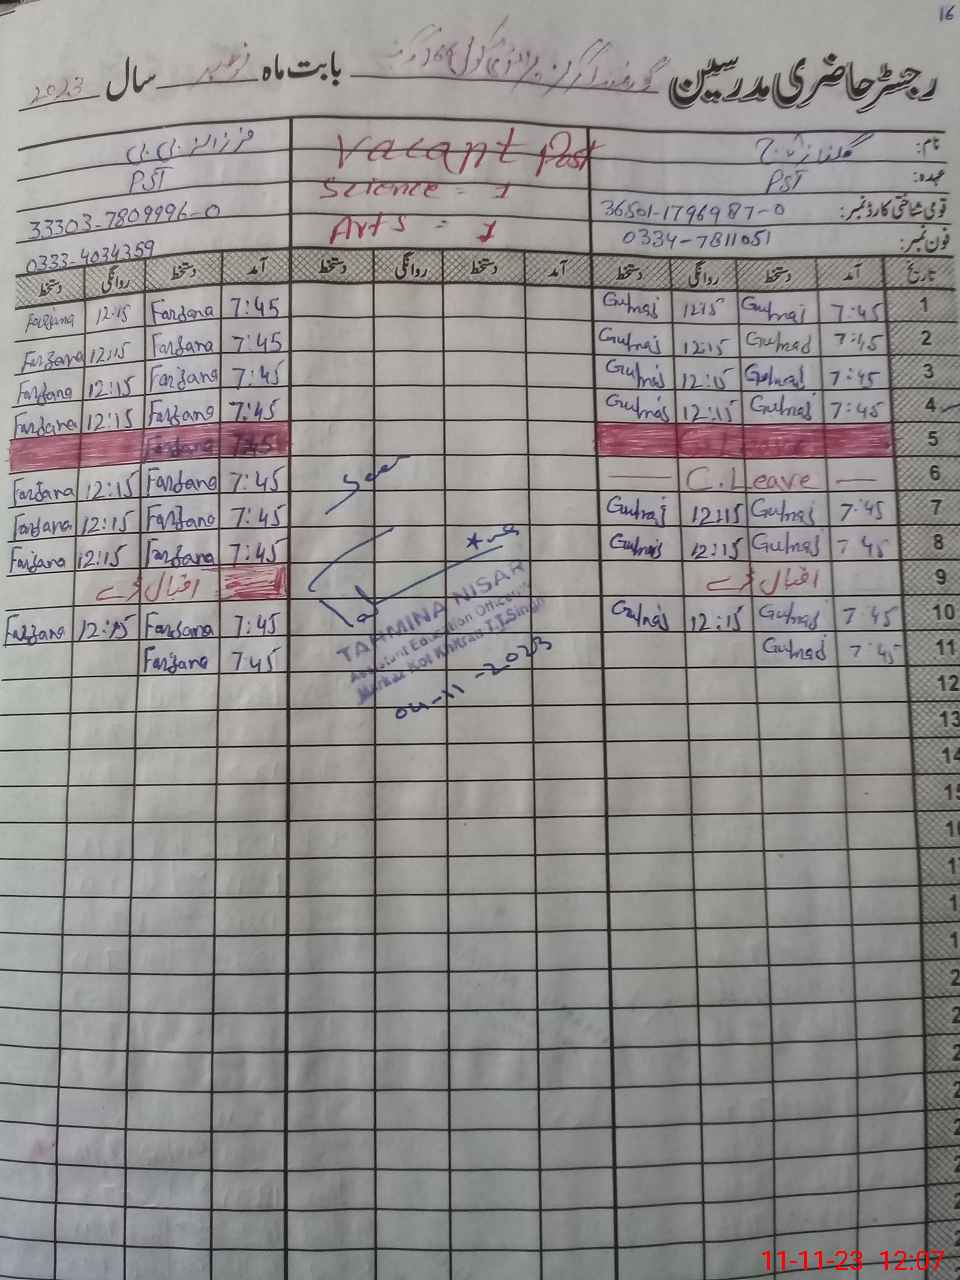 16
رجسٹر حاضری مدرسین گورنمنٹ گرلز پرائمری سکول بابت ماہ نومبر سال 2023
نام: گلناز Vacant Post فرزانہ بی بی
عہدہ: PST Science = 1 PST
قومی شناختی کارڈ نمبر: 36501-1796987-0 Arts = 1 33303-7809996-0
فون نمبر: 0334-7811051 0333-4034359
تاریخ آمد دستخط روانگی دستخط آمد دستخط روانگی دستخط آمد دستخط روانگی دستخط
1 7:45 Gulnaj 12:15 Gulnaj 7:45 Farzana 12:15 Farzana
2 7:45 Gulnaj 12:15 Gulnaj 7:45 Farzana 12:15 Farzana
3 7:45 Gulnaj 12:15 Gulnaj 7:45 Farzana 12:15 Farzana
4 7:45 Gulnaj 12:15 Gulnaj 7:45 Farzana 12:15 Farzana
5 7:45 Farzana
6 — C.Leave — 7:45 Farzana 12:15 Farzana
Seen
7 7:45 Gulnaj 12:15 Gulnaj 7:45 Farzana 12:15 Farzana
8 7:45 Gulnaj 12:15 Gulnaj 7:45 Farzana 12:15 Farzana
9 اقبال ڈے اقبال ڈے
10 7:45 Gulnaj 12:15 Gulnaj 7:45 Farzana 12:15 Farzana
11 7:45 Gulnaj 7:45 Farzana
TAHMINA NISAR
Assistant Education Officer
Markaz Kot Khetran T.T.Singh
04-11-2023
12
13
14
15
11-11-23 12:07